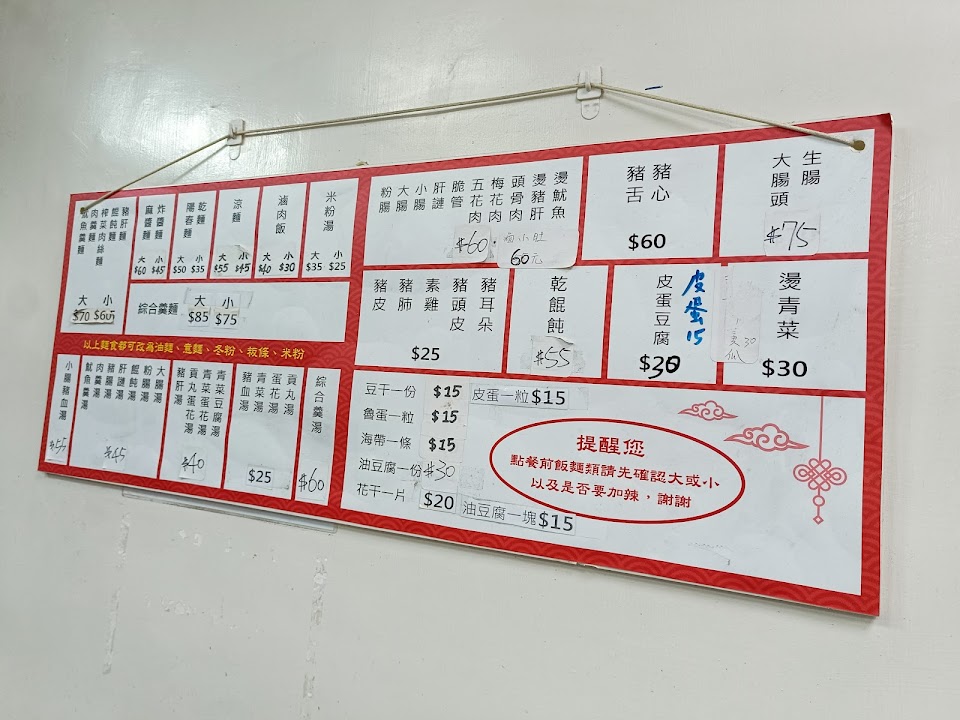 魷魚羹麵
肉羹麵
榨菜肉絲麵
餛飩麵
豬肝麵
大 小
$70 $60
麻醬麵
炸醬麵
大 小
$60 $45
陽春麵
乾麵
大 小
$50 $35
涼麵
大 小
$55 $45
滷肉飯
大 小
$40 $30
米粉湯
大 小
$35 $25
綜合羹麵
大 小
$85 $75
以上麵食都可改為油麵、意麵、冬粉、粄條、米粉
小腸豬血湯
$55
魷魚羹湯
肉羹湯
豬腸湯
肝膶湯
餛飩湯
粉腸湯
大腸湯
$45
豬肝湯
貢丸蛋花湯
青菜蛋花湯
青菜豆腐湯
$40
豬血湯
青菜湯
蛋花湯
貢丸湯
$25
綜合羹湯
$60
粉腸
大腸
小腸
肝膶
脆管
五花肉
梅花肉
頭骨肉
燙豬肝
燙魷魚
$60
滷小肚
60元
豬舌
豬心
$60
大腸頭
生腸
$75
豬皮
豬肺
素雞
豬頭皮
豬耳朵
$25
乾餛飩
$55
皮蛋豆腐
$30
皮蛋15
燙青菜
$30
豆干一份 $15
皮蛋一粒$15
魯蛋一粒 $15
海帶一條 $15
油豆腐一份$30
花干一片 $20
油豆腐一塊$15
提醒您
點餐前飯麵類請先確認大或小
以及是否要加辣，謝謝